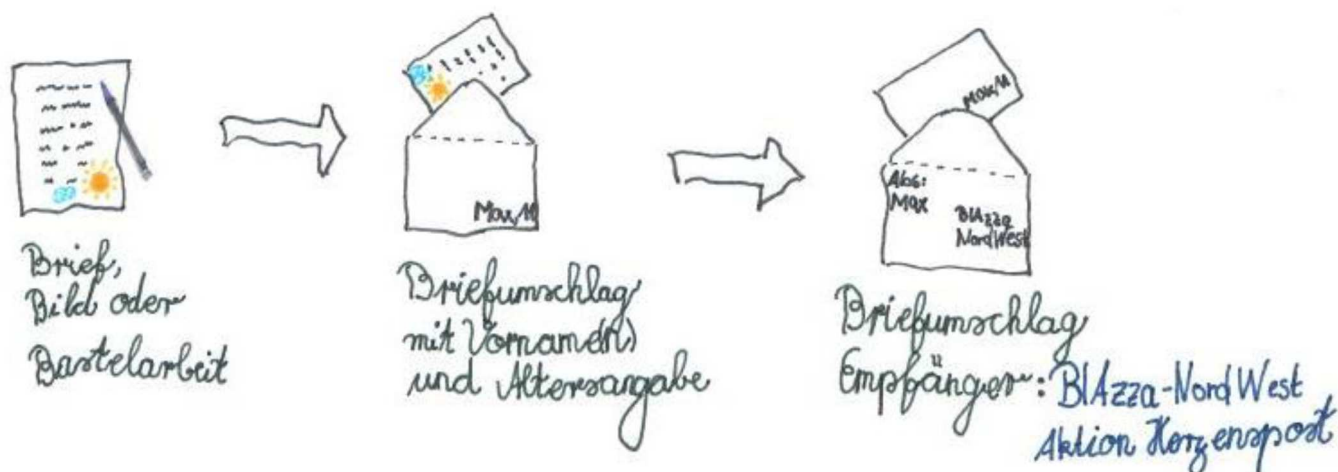 Brief,
Bild oder
Bastelarbeit
Max, 11
Briefumschlag
mit Vorname(n)
und Altersangabe
Max, 11
Abs:
Max
BIAzza
NordWest
Briefumschlag
Empfänger: BIAzza-NordWest
Aktion Herzenspost